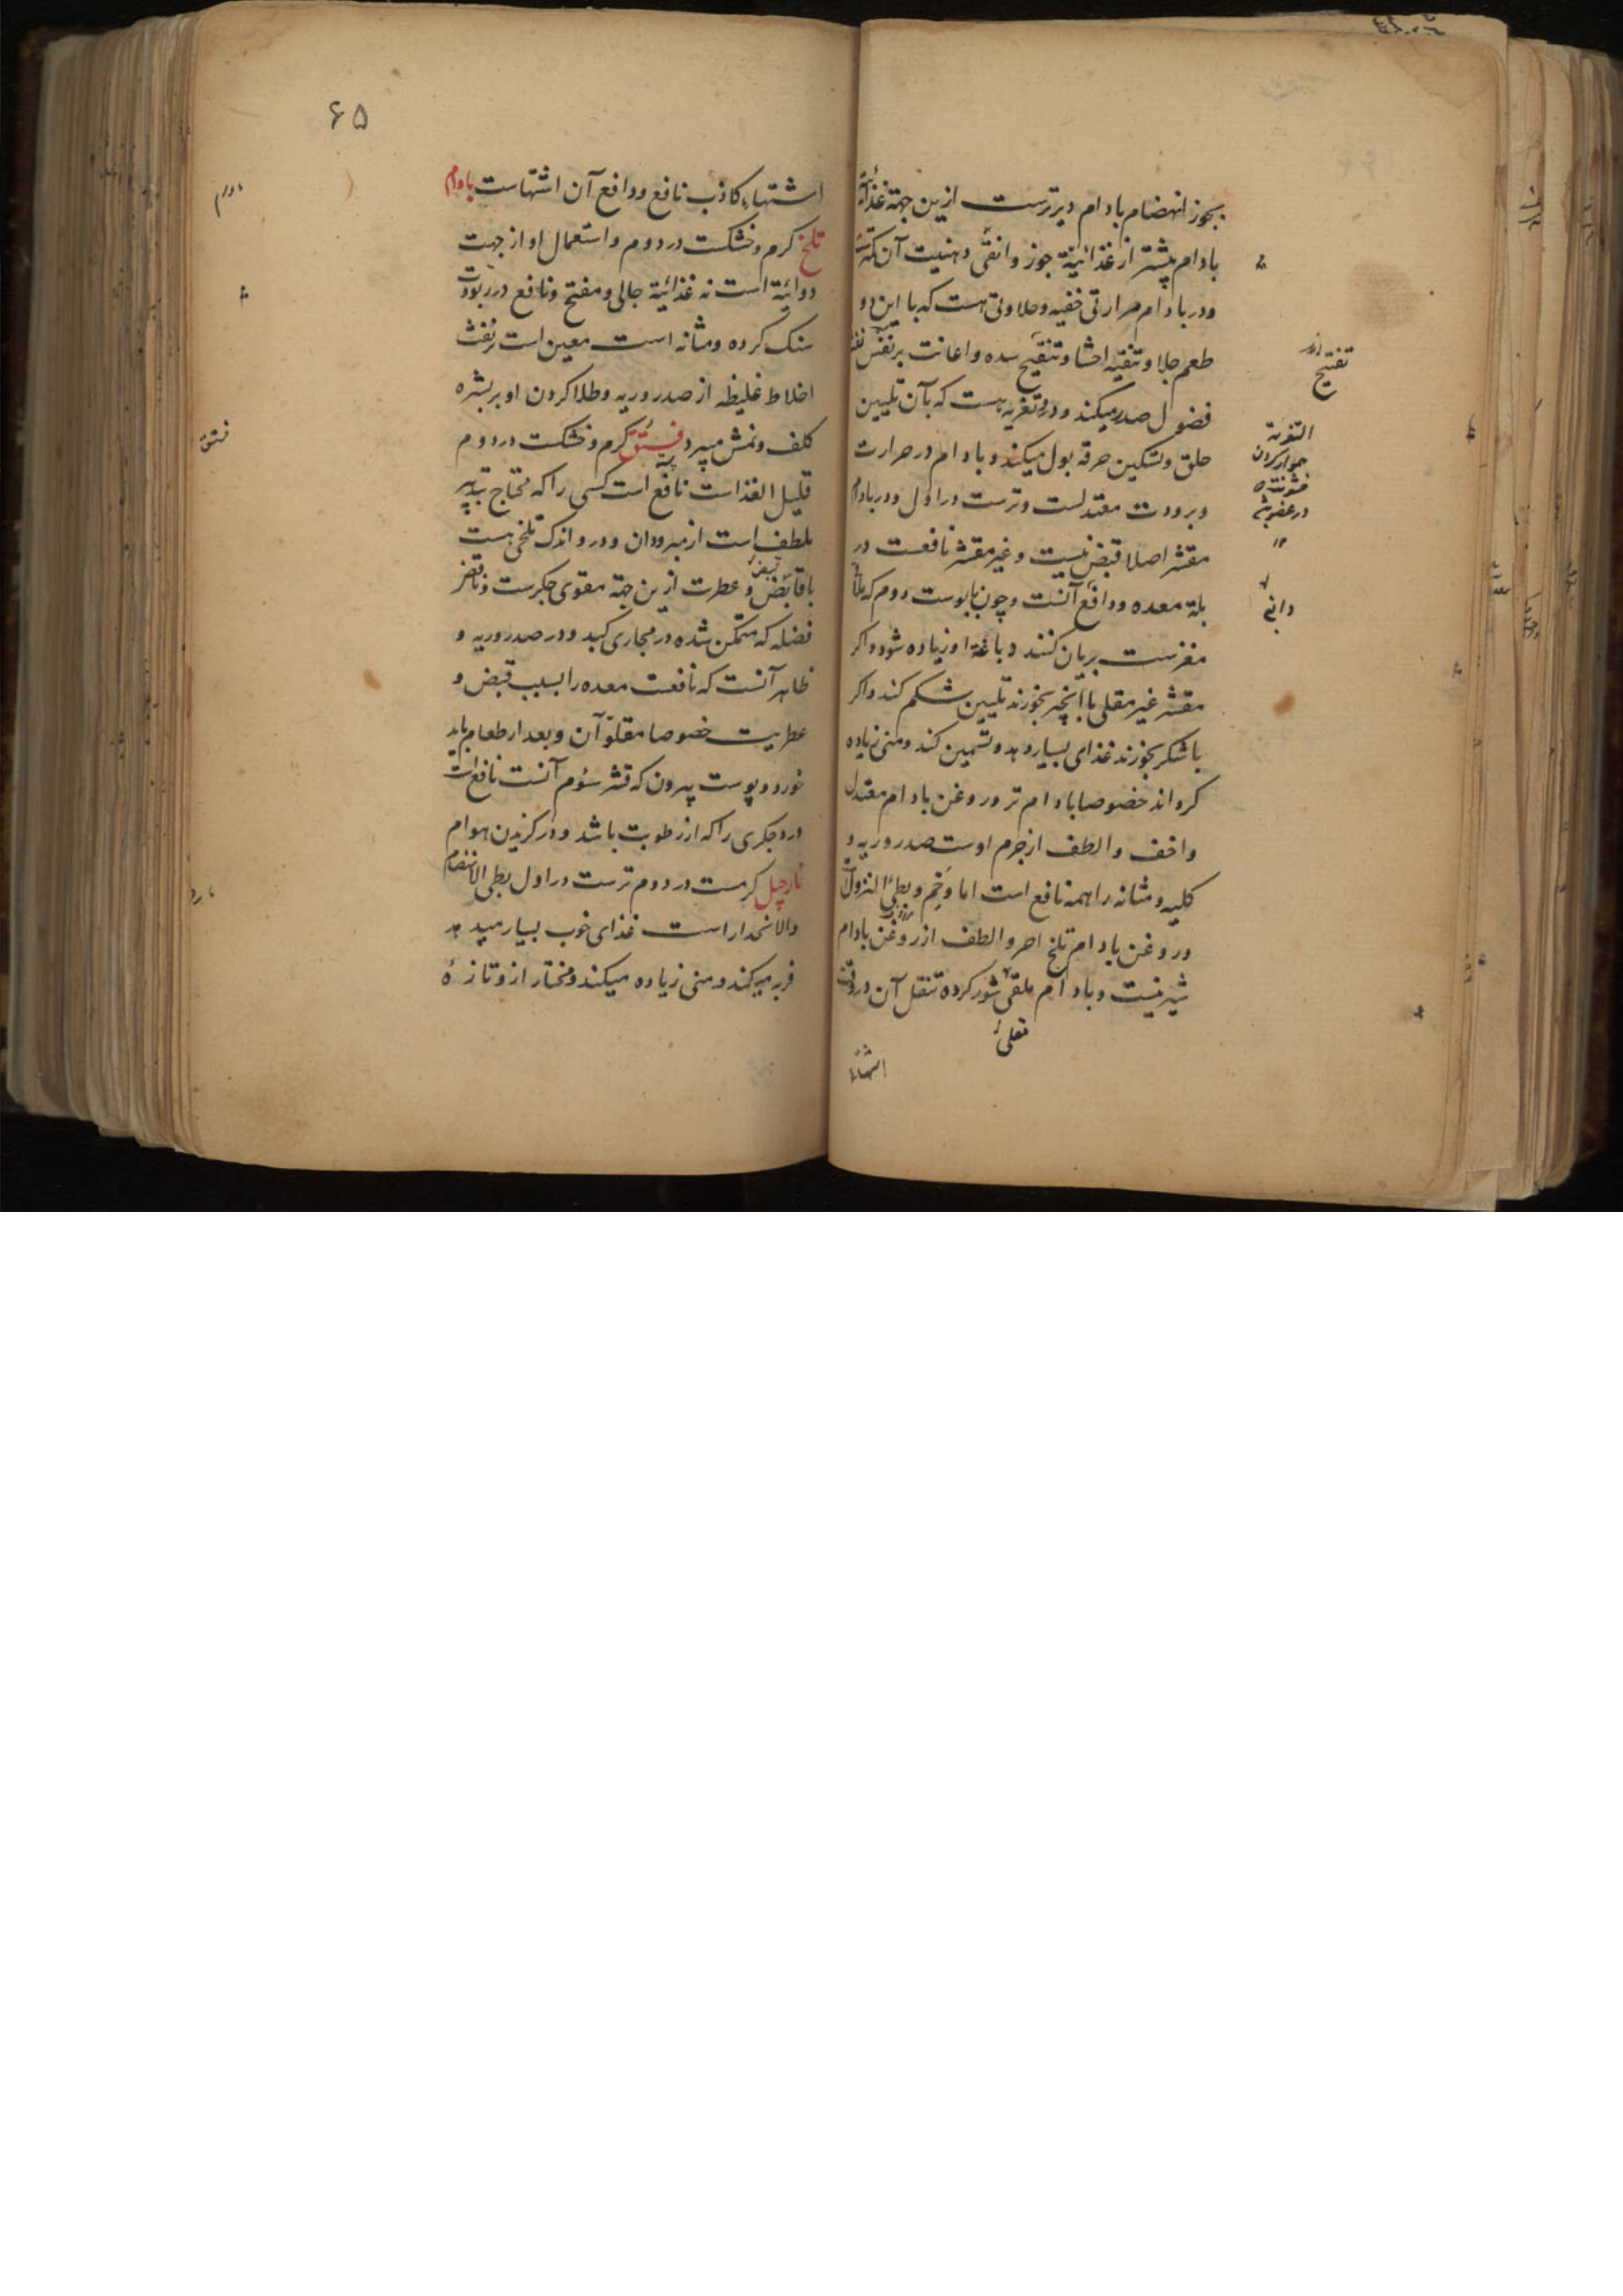 بجوز انهضام بادام دیرترست ازین جهة غذائیة
بادام بیشتر از غذائیة جوز و انقی دهنیت آن
و در بادام حرارتی خفیه و حلاوتی هست که با این دو
طعم جلا و تنقیه احشا و تنقیح سده و اعانت بر نفث
فضول صدر میکند و درو تغریه هست که بآن تلیین
حلق و تسکین حرقه بول میکند و بادام در حرارت
و برودت معتدلست و ترست در اول و در بادام
مقشر اصلا قبض نیست و غیر مقشر نافعست در
بلة معده و دافع آنست و چون با پوست دوم که
مغزست بریان کنند دباغة او زیاده شود و اکر
مقشر غیر مقلی با انجیر بخورند تلیین شکم کند و اکر
با شکر بخورند غذای بسیار دهد و تسمین کند و منی زیاده
کرداند خصوصا بادام تر و روغن بادام معتدل
و اخف و الطف از جرم اوست صدر و ریه و
کلیه و مثانه را همه نافع است اما وخم و بطی النزول
و روغن بادام تلخ احر و الطف از روغن بادام
شیرینست و بادام ملقی شور کرده تنقل آن در وقت
مقلی
اشتهاء
تفتیح
التغریة
هموار کردن
دافع
۶۵
اشتهاء کاذب نافع و دافع آن اشتهاست بادام
تلخ کرم و خشکست در دوم و استعمال او از جهت
دوائیة است نه غذائیة جالی و مفتح و نافع در
سنک کرده و مثانه است معین است بر نفث
اخلاط غلیظه از صدر و ریه و طلا کردن او بر بشره
کلف و نمش میبرد فستق کرم و خشکست در دوم
قلیل الغذاست نافع است کسی را که محتاج بتدبیر
ملطف است از مبرودان و درو اندک تلخی هست
با قابض و عطرت ازین جهة مقوی جکرست و نافع
فضله که متمکن شده در مجاری کبد و در صدر و ریه و
ظاهر آنست که نافعست معده را بسبب قبض و
عطریت خصوصا مقلو آن و بعد از طعام باید
خورد و پوست بیرون که قشر سوم آنست نافع است
درد جکری را که از رطوبت باشد و در کزیدن هوام
نارجیل کرمست در دوم ترست در اول بطی الانهضام
والانحدار است غذای خوب بسیار میدهد
فربه میکند و منی زیاده میکند و مختار ازو تازهٔ
بادام
فستق